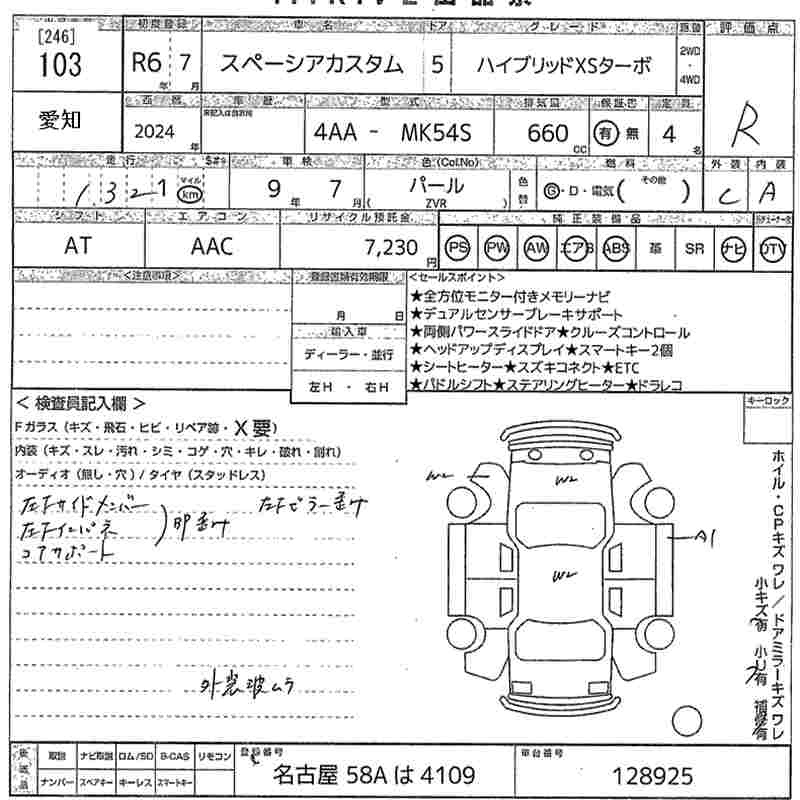 [246]
103
愛知
初度登録
R6 7
年 月
車名
スペーシアカスタム
ドア
5
グレード
ハイブリッドXSターボ
2WD
・
4WD
評価点
R
西暦
2024
年
車歴
型式
4AA - MK54S
排気量
660
CC
保証書
有 無
定員
4
名
走行
1321
マイル
km
車検
9 年 7 月
色(Col.No)
パール
( ZVR )
色替
燃料
G・D・電気( その他 )
外装
C
内装
A
シフト
AT
エアコン
AAC
リサイクル預託金
7,230
円
純正装備品
PS PW AW エアB ABS 革 SR ナビ TV
<注意事項>
登録書類有効期限
月 日
輸入車
ディーラー・並行
左H ・ 右H
<セールスポイント>
★全方位モニター付きメモリーナビ
★デュアルセンサーブレーキサポート
★両側パワースライドドア★クルーズコントロール
★ヘッドアップディスプレイ★スマートキー2個
★シートヒーター★スズキコネクト★ETC
★パドルシフト★ステアリングヒーター★ドラレコ
キーロック
< 検査員記入欄 >
Fガラス(キズ・飛石・ヒビ・リペア跡・X要)
内装(キズ・スレ・汚れ・シミ・コゲ・穴・キレ・破れ・割れ)
オーディオ(無し・穴)/タイヤ(スタッドレス)
左Fサイドメンバー
左Fインパネ
コアサポート
)即歪み
左Fピラー歪み
外装波ムラ
W2
W2
W2
A1
ホイル・CPキズ ワレ/ドアミラーキズ ワレ
小キズ有 小U有 補修有
取説 ナビ取説 ロム/SD B-CAS リモコン
ナンバー スペアキー キーレス スマートキー
登録番号
名古屋 58A は 4109
車台番号
128925